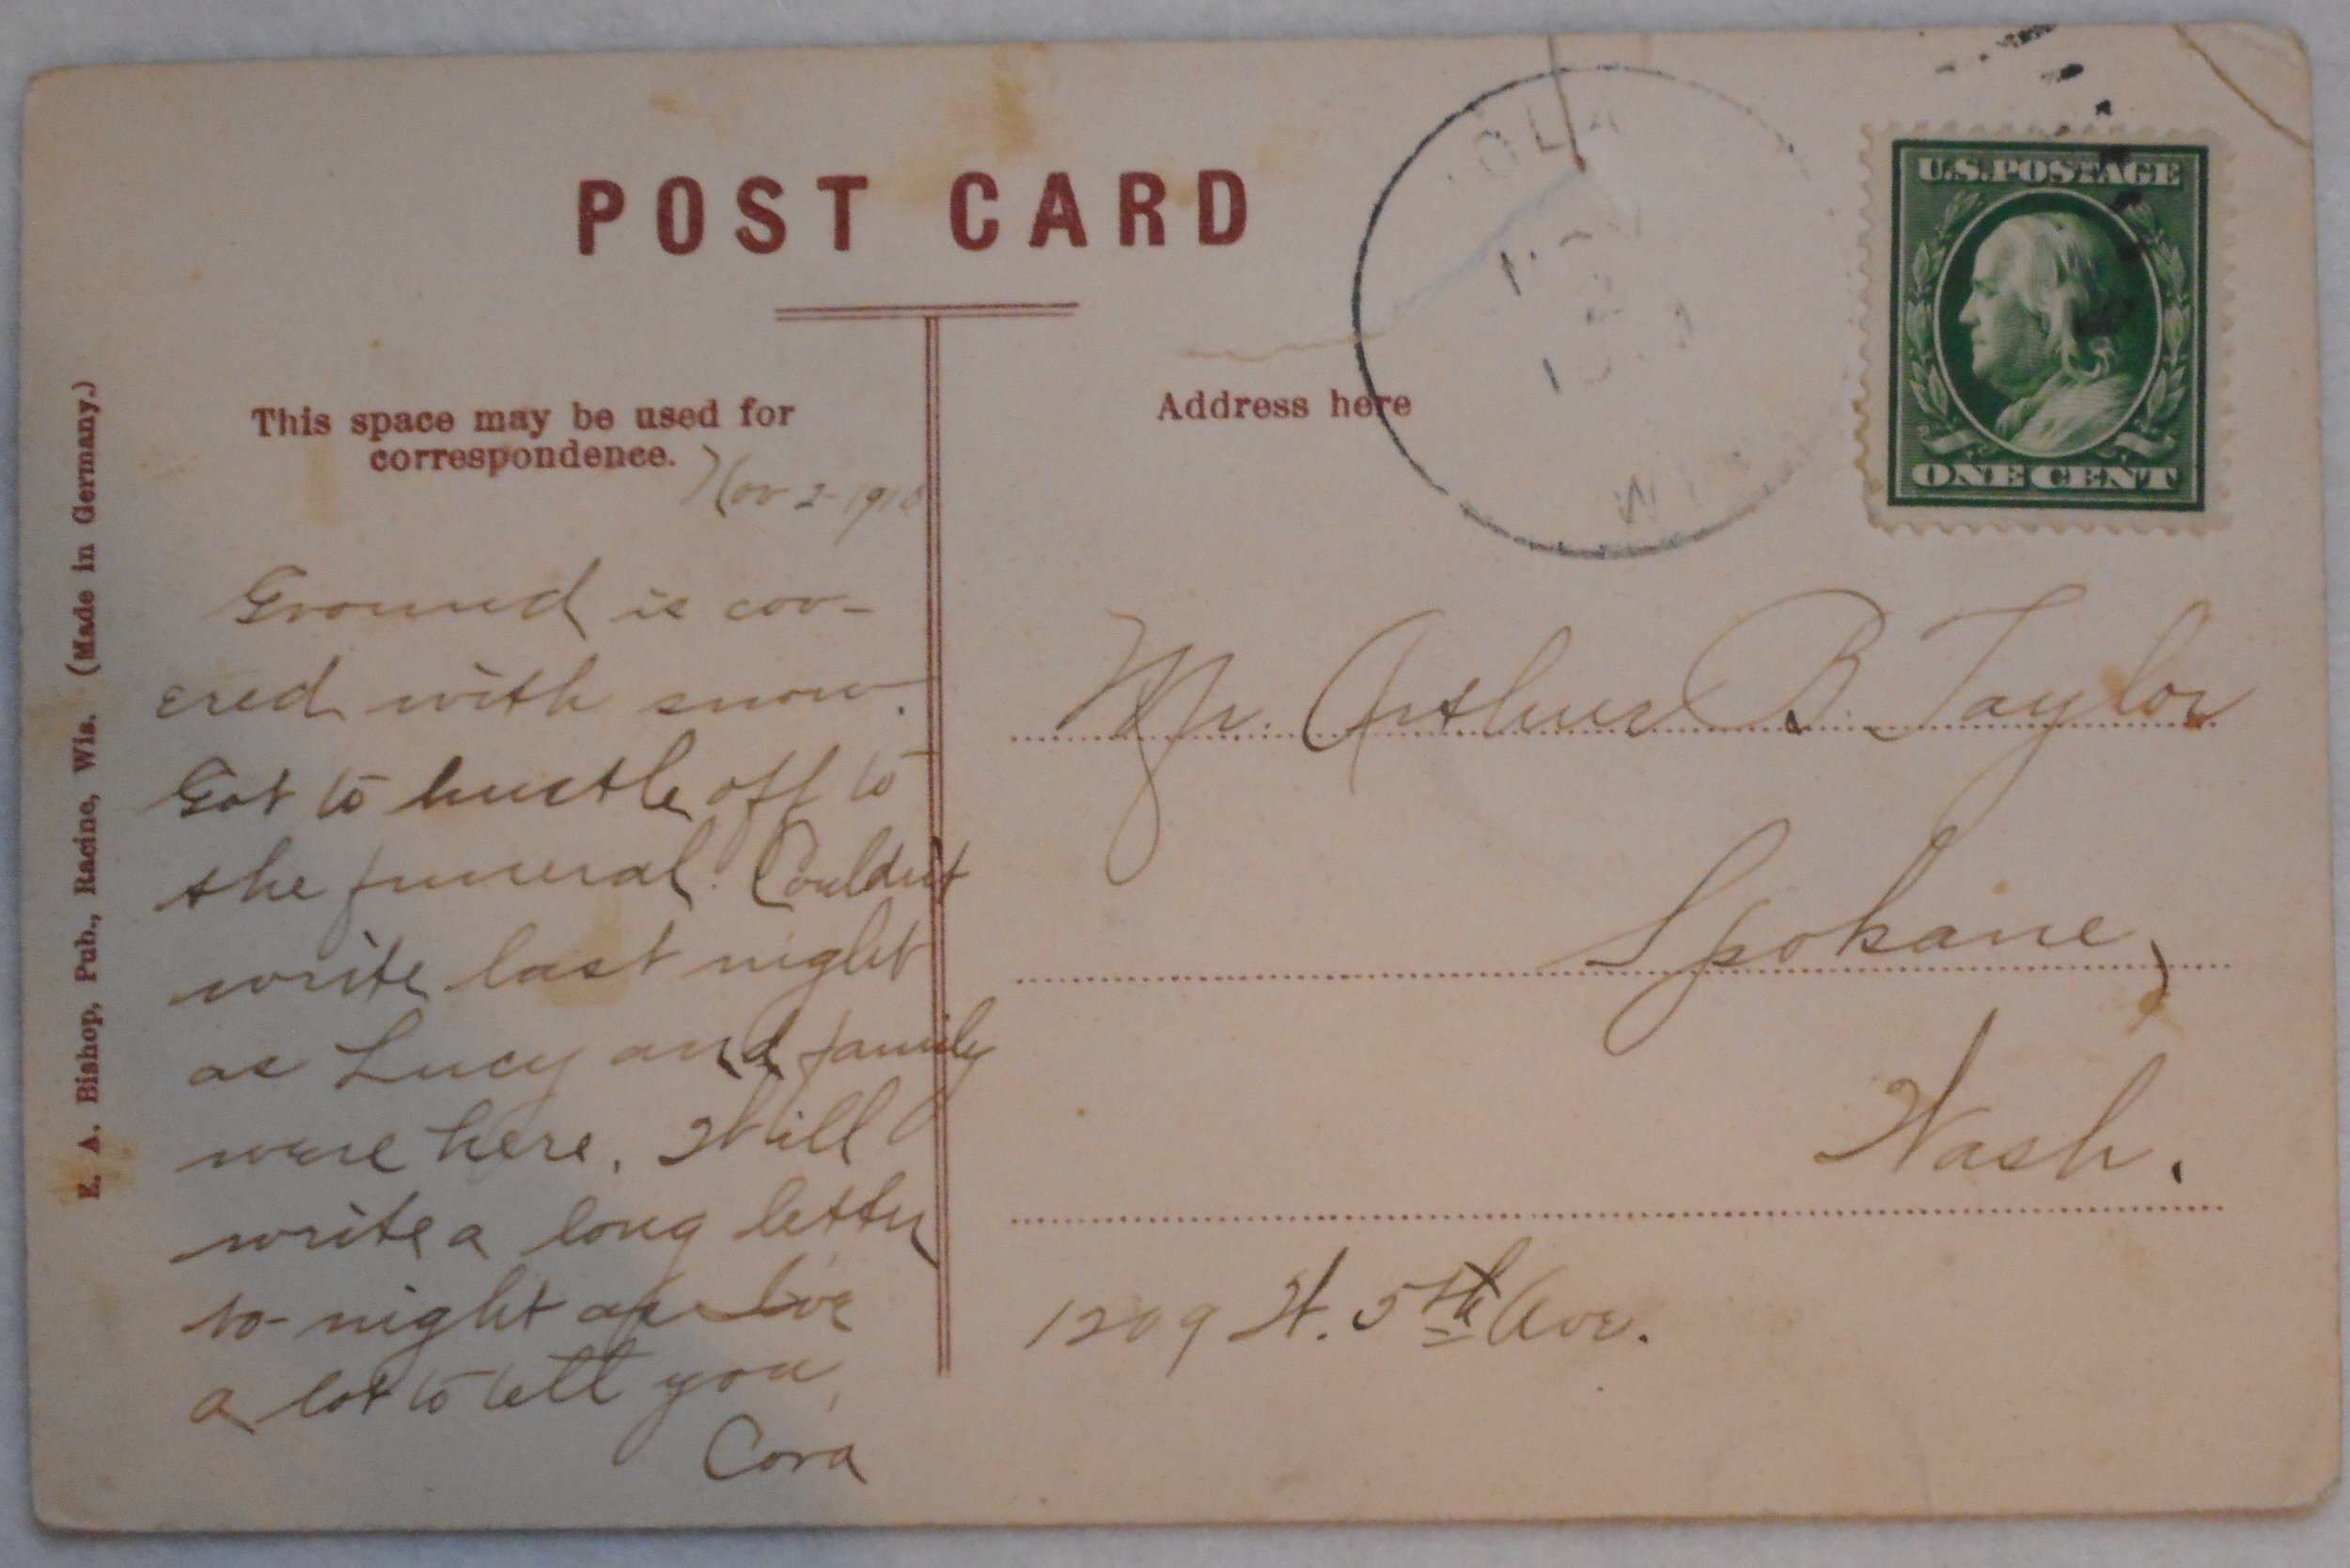 POST CARD
This space may be used for
correspondence.
Nov 2-1910
Ground is cov-
ered with snow.
Got to hustle off to
the funeral. Couldn't
write last night
as Lucy and family
were here. Will
write a long letter
to-night as I've
a lot to tell you.
Cora
E. A. Bishop, Pub., Racine, Wis. (Made in Germany.)
Address here
IOLA
NOV
2
WIS
U.S. POSTAGE
ONE CENT
Mr. Arthur B. Taylor
Spokane,
Wash.
1209 W. 5th Ave.